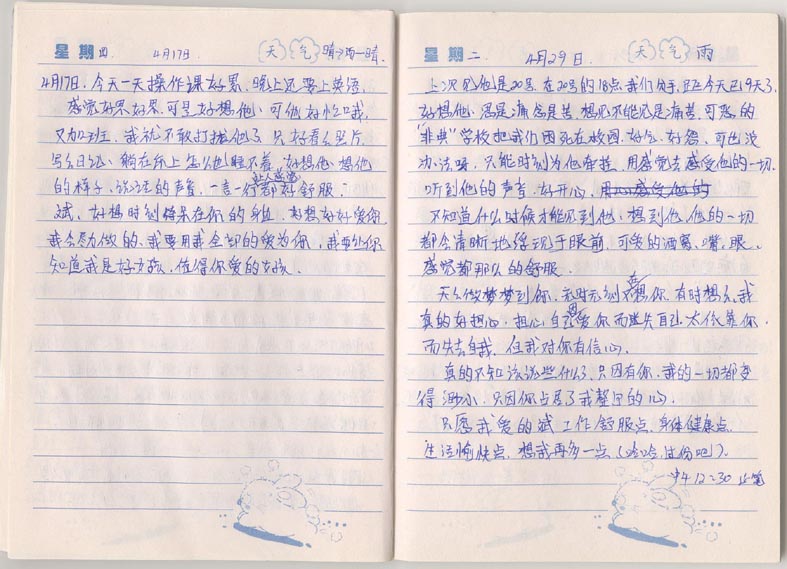 星期四 4月17日. 天气 晴→雨→晴.
4月17日. 今天一天操作课好累, 晚上还要上英语,
感觉好累好累. 可是好想他、可他好忙哦,
又加班. 我就不敢打扰他了. 只好看么照片,
写么日记、躺在床上怎么也睡不着, 好想他、想他
的样子, 说话的声音, 一言一行都让人感觉好舒服.
斌、好想时刻偎在你的身边, 好想好好爱你
我会尽力做的、我要用我全部的爱为你, 我要让你
知道我是好女孩, 值得你爱的女孩.
星期二 4月29日. 天气 雨
上次见他是20号. 在20号的18点我们分手, 距今天已9天了.
好想他、思是痛念是苦. 想见不能见是痛苦. 可恶的
"非典" 学校把我们困死在校园. 好气、好怨、可也没
办法呀. 只能时刻为他牵挂, 用感觉去感受他的一切.
听到他的声音, 好开心,
不知道什么时候才能见到他、想到他、他的一切
都会清晰地浮现于眼前, 可爱的酒窝、嘴、眼、
感觉都那么的舒服.
天天做梦梦到你, 无时无刻不在想你. 有时想么, 我
真的好担心, 担心自己爱你而迷失自己. 太依靠你
而失去自我, 但我对你有信心.
真的不知该说些什么了, 只因有你, 我的一切都变
得渺小, 只因你占居了我整个的心.
只愿我爱的斌工作舒服点, 身体健康点,
生活愉快点, 想我再多一点 (哈哈, 过份吧!).
12:30 止笔